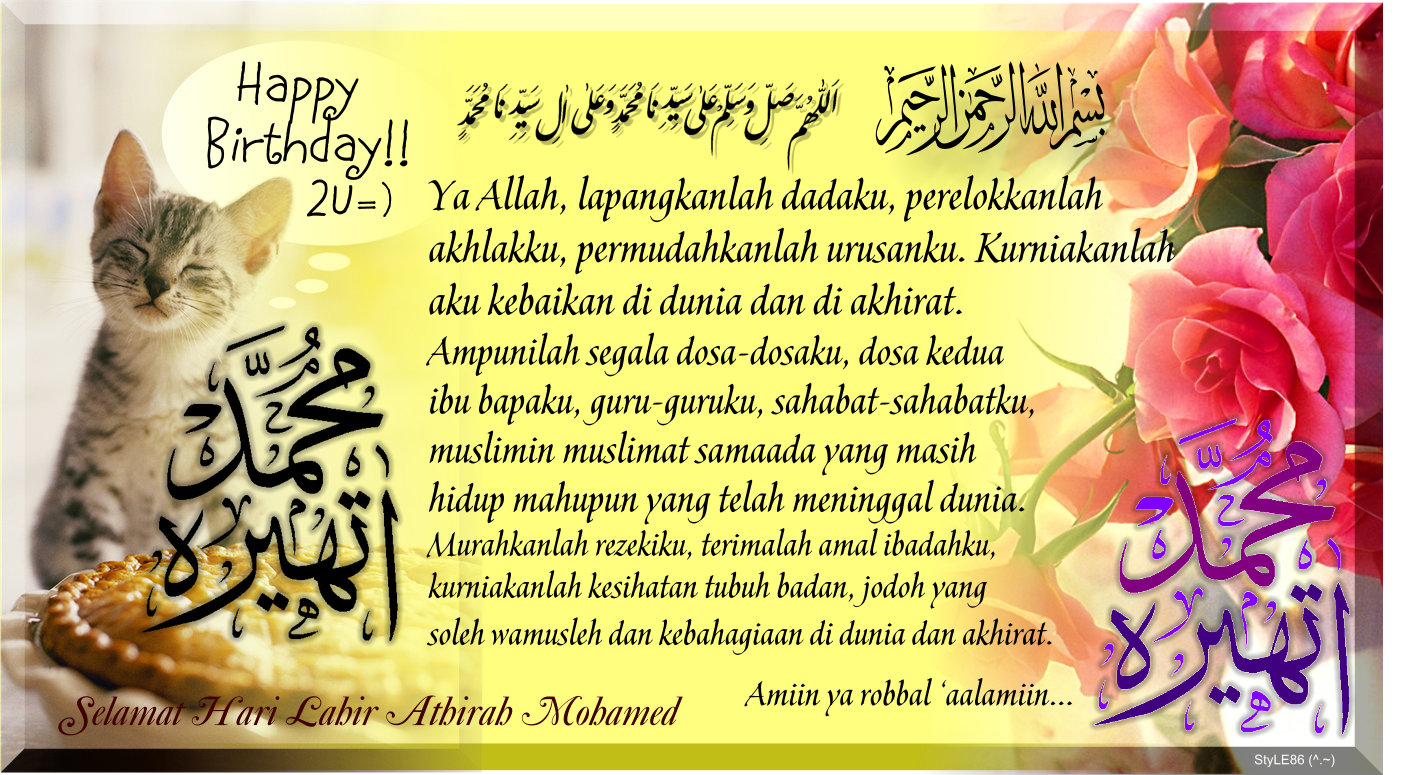 Happy
Birthday!!
2U=)
بِسْمِ اللَّهِ الرَّحْمَنِ الرَّحِيمِ
اَللّٰهُمَّ صَلِّ وَسَلِّمْ عَلٰى سَيِّدِنَا مُحَمَّدٍ وَعَلٰى اٰلِ سَيِّدِنَا مُحَمَّدٍ
Ya Allah, lapangkanlah dadaku, perelokkanlah
akhlakku, permudahkanlah urusanku. Kurniakanlah
aku kebaikan di dunia dan di akhirat.
Ampunilah segala dosa-dosaku, dosa kedua
ibu bapaku, guru-guruku, sahabat-sahabatku,
muslimin muslimat samaada yang masih
hidup mahupun yang telah meninggal dunia.
Murahkanlah rezekiku, terimalah amal ibadahku,
kurniakanlah kesihatan tubuh badan, jodoh yang
soleh wamusleh dan kebahagiaan di dunia dan akhirat.
Amiin ya robbal ‘aalamiin...
محمد
اتهيره
محمد
اتهيره
Selamat Hari Lahir Athirah Mohamed
StyLE86 (^.~)